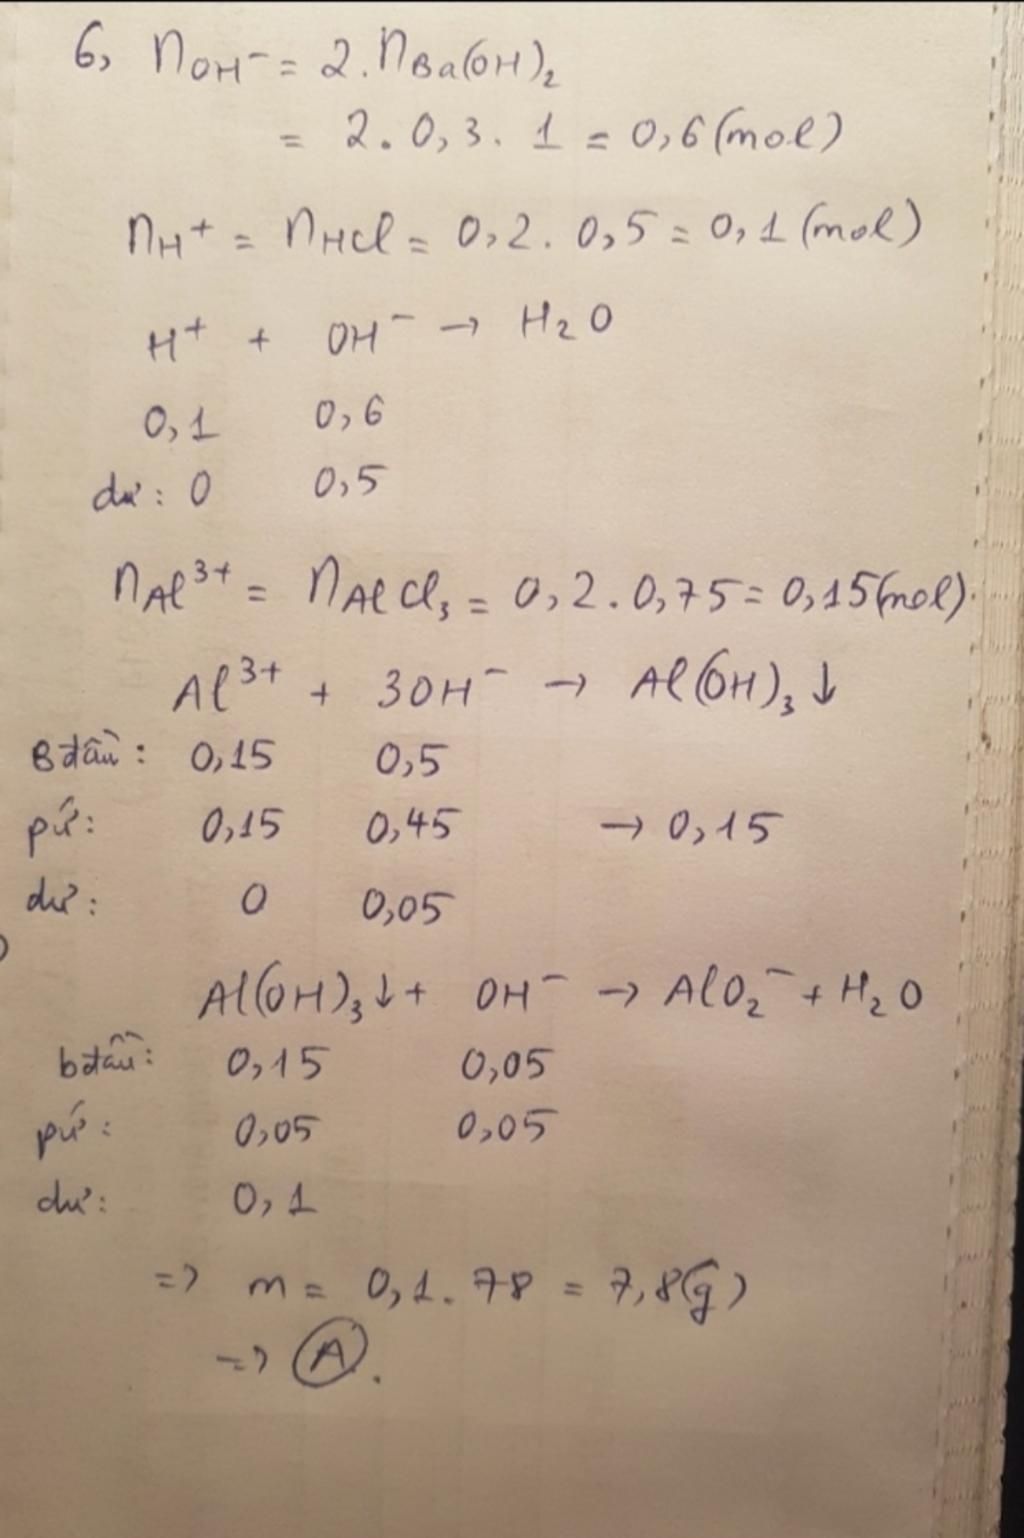 6, nOH⁻ = 2.nBa(OH)₂
= 2.0,3.1 = 0,6(mol)
nH⁺ = nHCl = 0,2.0,5 = 0,1(mol)
H⁺ + OH⁻ → H₂O
0,1 0,6
dư: 0 0,5
nAl³⁺ = nAlCl₃ = 0,2.0,75 = 0,15(mol).
Al³⁺ + 3OH⁻ → Al(OH)₃↓
Bđầu: 0,15 0,5
pứ: 0,15 0,45 → 0,15
dư: 0 0,05
Al(OH)₃↓ + OH⁻ → AlO₂⁻ + H₂O
bđầu: 0,15 0,05
pứ: 0,05 0,05
dư: 0,1
=> m = 0,1.78 = 7,8(g)
=> A.